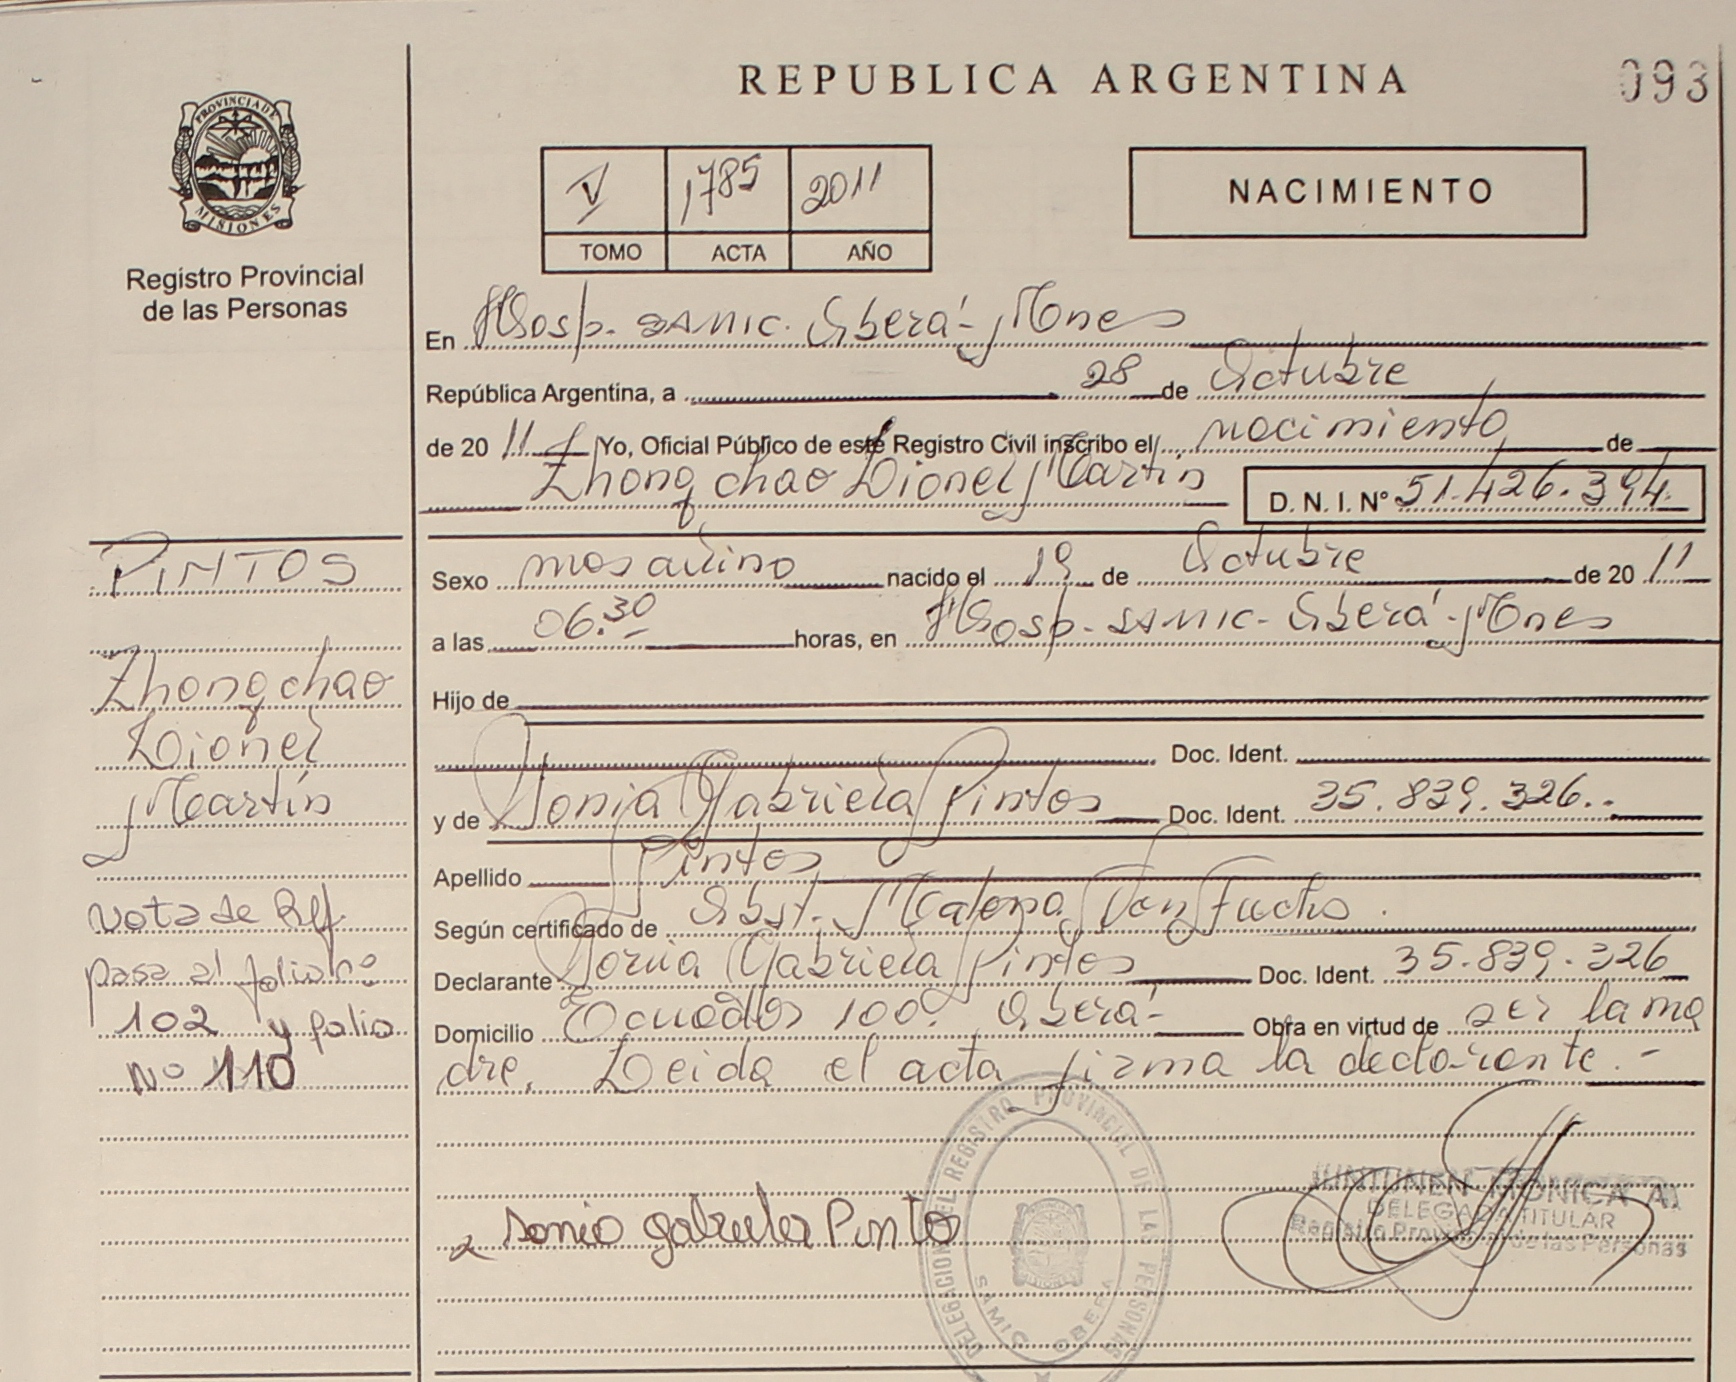 REPUBLICA ARGENTINA
093
PROVINCIA DE MISIONES
Registro Provincial
de las Personas
V 1785 2011
TOMO ACTA AÑO
NACIMIENTO
En Hosp. SAMIC. Oberá - Mnes
República Argentina, a 28 de Octubre
de 2011 Yo, Oficial Público de este Registro Civil inscribo el nacimiento de
Zhongchao Lionel Martín D. N. I. Nº 51.426.394
Sexo masculino nacido el 19 de Octubre de 2011
a las 06.30 horas, en Hosp. SAMIC - Oberá - Mnes
Hijo de
Doc. Ident.
y de Sonia Gabriela Pintos Doc. Ident. 35.839.326.
Apellido Pintos
Según certificado de Obst. Malena Von Fuchs.
Declarante Sonia Gabriela Pintos Doc. Ident. 35.839.326
Domicilio Ecuador 100. Oberá - Obra en virtud de ser la ma
dre. Leida el acta firma la declarante. -
PINTOS
Zhongchao
Lionel
Martín
Nota de Ref
pasa al folio nº
102 y folio
Nº 110
sonia gabriela Pinto
DELEGACION DEL REGISTRO PROVINCIAL DE LAS PERSONAS
SAMIC OBERA
JUNTUNEN MONICA A.
DELEGADA TITULAR
Registro Provincial de las Personas